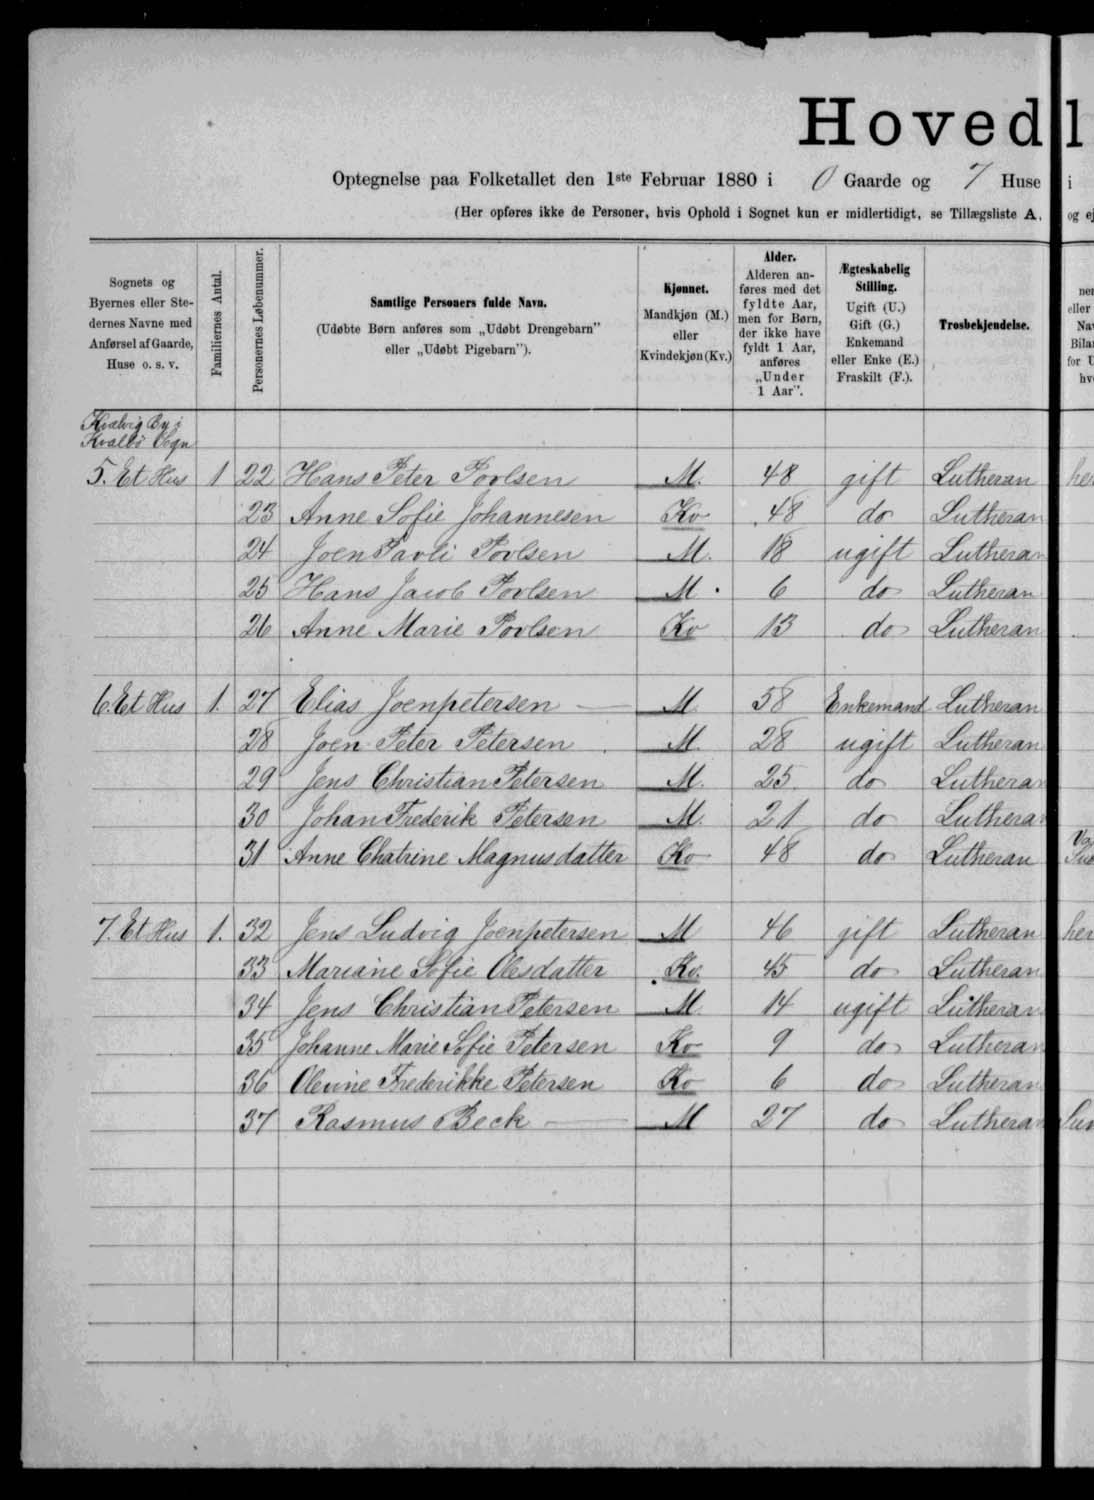 Hoved l
Optegnelse paa Folketallet den 1ste Februar 1880 i 0 Gaarde og 7 Huse i
(Her opføres ikke de Personer, hvis Ophold i Sognet kun er midlertidigt, se Tillægsliste A, og ej
Sognets og Byernes eller Stedernes Navne med Anførsel af Gaarde, Huse o. s. v.
Familiernes Antal.
Personernes Løbenummer.
Samtlige Personers fulde Navn.
(Udøbte Børn anføres som „Udøbt Drengebarn"
eller „Udøbt Pigebarn").
Kjønnet.
Mandkjøn (M.)
eller
Kvindekjøn (Kv.)
Alder.
Alderen anføres med det fyldte Aar, men for Børn, der ikke have fyldt 1 Aar, anføres „Under 1 Aar".
Ægteskabelig Stilling.
Ugift (U.)
Gift (G.)
Enkemand
eller Enke (E.)
Fraskilt (F.).
Trosbekjendelse.
Kvalvig By i
Kvalbø Sogn
5. Et Hus 1 22 Hans Peter Povlsen M. 48 gift Lutheran
23 Anne Sofie Johannesen Kv 48 do Lutheran
24 Joen Pavli Povlsen M. 18 ugift Lutheran
25 Hans Jacob Povlsen M. 6 do Lutheran
26 Anne Marie Povlsen Kv 13 do Lutheran
6. Et Hus 1. 27 Elias Joenpetersen M. 58 Enkemand Lutheran
28 Joen Peter Petersen M. 28 ugift Lutheran
29 Jens Christian Petersen M. 25 do Lutheran
30 Johan Frederik Petersen M. 21 do Lutheran
31 Anne Chatrine Magnusdatter Kv 48 do Lutheran
7. Et Hus 1. 32 Jens Ludvig Joenpetersen M 46 gift Lutheran
33 Mariane Sofie Olesdatter Kv. 45 do Lutheran
34 Jens Christian Petersen M. 14 ugift Lutheran
35 Johanne Marie Sofie Petersen Kv 9 do Lutheran
36 Olevine Frederikke Petersen Kv 6 do Lutheran
37 Rasmus Beck M 27 do Lutheran